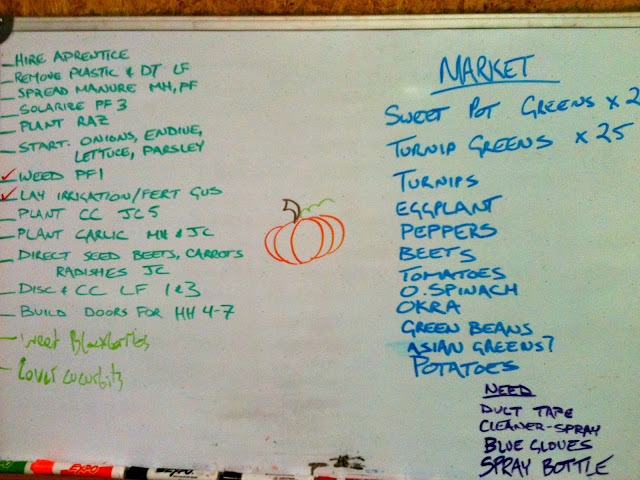 HIRE APRENTICE
REMOVE PLASTIC & DT LF
SPREAD MANURE MH, PF
SOLARIZE PF3
PLANT RAZ
START: ONIONS, ENDIVE,
LETTUCE, PARSLEY
WEED PF1
LAY IRRIGATION/FERT GUS
PLANT CC JC5
PLANT GARLIC MH & JC
DIRECT SEED BEETS, CARROTS
RADISHES JC
DISC & CC LF 1&3
BUILD DOORS FOR HH 4-7
Weed Blackberries
Cover cucurbits
MARKET
SWEET POT GREENS x 2
TURNIP GREENS x 25
TURNIPS
EGGPLANT
PEPPERS
BEETS
TOMATOES
O. SPINACH
OKRA
GREEN BEANS
ASIAN GREENS?
POTATOES
NEED
DUCT TAPE
CLEANER-SPRAY
BLUE GLOVES
SPRAY BOTTLE
EXPO
EXPO